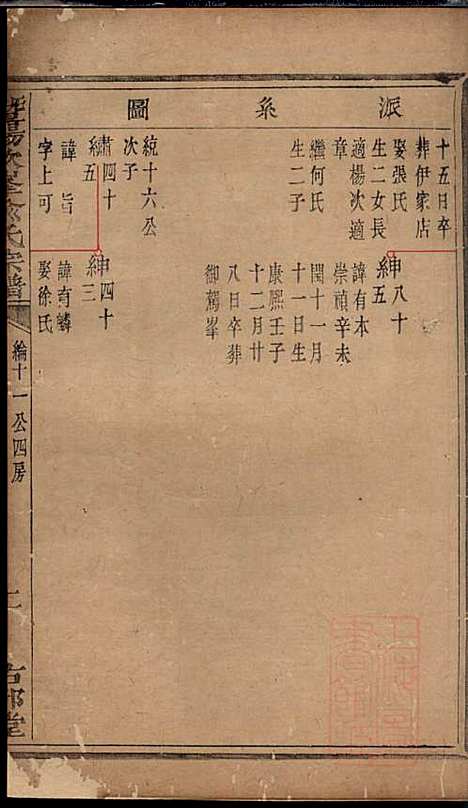 派系圖
十五日卒
葬伊家店
娶張氏
生二女長
適楊次適
章
繼何氏
生二子
紳八十
五
諱有本
崇禎辛未
閏十一月
十一日生
康熙壬子
十二月廿
八日卒葬
御駕峯
統十六公
次子
肅四十
繡五
諱旨
字上可
紳四十
三
諱有麟
娶徐氏
氏宗譜
綸十一公四房
二
堂